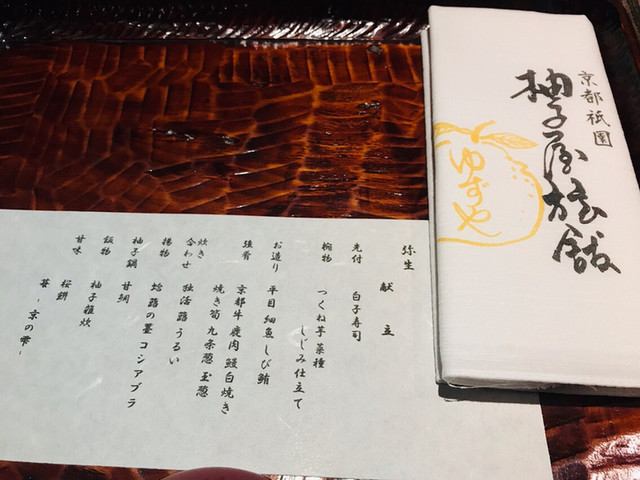 弥生
献立
先付　白子寿司
椀物　つくね芋菜種
しじみ仕立て
お造り　平目 細魚 しび鮪
強肴　京都牛 鹿肉 鰻白焼き
焼き筍 九条葱 玉葱
炊き合わせ　独活 蕗 うるい
揚物　蛤 蕗の薹 コシアブラ
柚子鍋　甘鯛
飯物　柚子雑炊
甘味　桜餅
苺 -京の雫-
京都祇園
柚子屋旅館
ゆずや